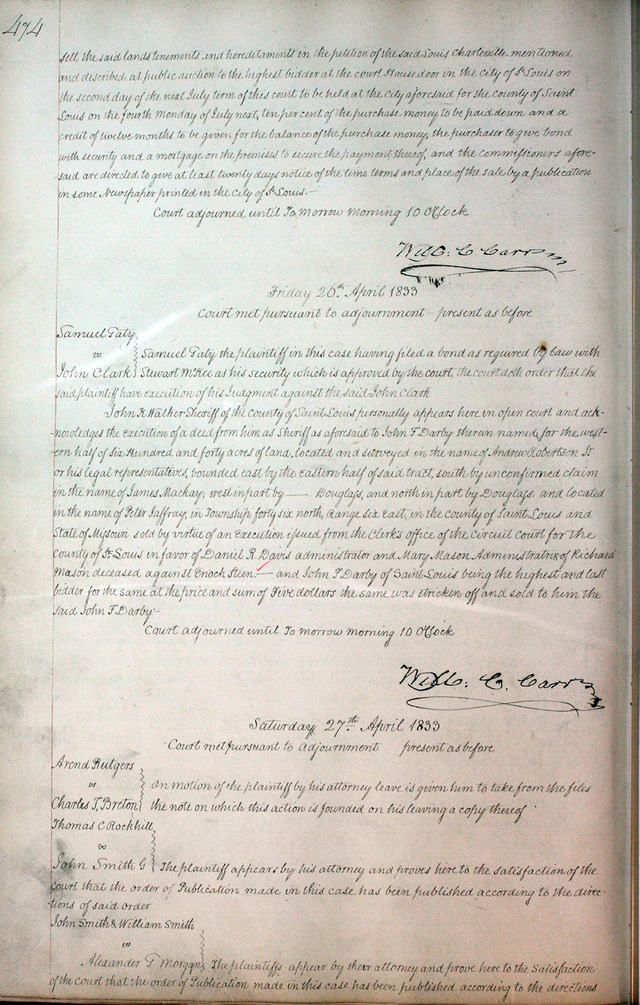 474
sell the said lands tenements and hereditaments in the petition of the said Louis Charleville mentioned
and described at public auction to the highest bidder at the court House door in the city of St Louis on
the second day of the next July term of this court to be held at the city aforesaid for the county of Saint
Louis on the fourth Monday of July next, ten percent of the purchase money to be paid down and a
credit of twelve months to be given for the balance of the purchase money, the purchaser to give bond
with security and a mortgage on the premises to secure the payment thereof, and the commissioners afore-
said are directed to give at least twenty days notice of the time terms and place of the sale by a publication
in some Newspaper printed in the City of St Louis.—
Court adjourned until To morrow morning 10 O'Clock
Will. C. Carr
Friday 26th April 1833
Court met pursuant to adjournment present as before
Samuel Gaty
vs
John Clark
Samuel Gaty the plaintiff in this case having filed a bond as required by law with
Stewart McKee as his security which is approved by the court, the court doth order that the
said plaintiff have execution of his Judgment against the said John Clark
John K Walker Sheriff of the county of Saint Louis personally appears here in open court and ack-
nowledges the execution of a deed from him as Sheriff as aforesaid to John F Darby therein named, for the west-
ern half of six Hundred and forty acres of land, located and surveyed in the name of Andrew Robertson Jr
or his legal representatives, bounded east by the eastern half of said tract, south by unconfirmed claim
in the name of James Mackay, west in part by —— Douglass, and north in part by Douglass and located
in the name of Peter Jaffray, in Township forty six north, Range six east, in the County of Saint Louis and
State of Missouri sold by virtue of an Execution issued from the Clerk's office of the Circuit Court for the
County of St Louis in favor of Daniel R Davis administrator and Mary Mason Administratrix of Richard
Mason deceased against Enoch Steen.— and John F Darby of Saint Louis being the highest and last
bidder for the same at the price and sum of Five dollars the same was stricken off and sold to him the
said John F Darby—
Court adjourned until To morrow morning 10 O'Clock
Will. C. Carr
Saturday 27th April 1833
Court met pursuant to adjournment present as before
Arend Rutgers
vs
Charles T, Breton
On motion of the plaintiff by his attorney leave is given him to take from the files
the note on which this action is founded on his leaving a copy thereof
Thomas C Rockhill
vs
John Smith G
The plaintiff appears by his attorney and proves here to the satisfaction of the
Court that the order of Publication made in this case has been published according to the direc-
tions of said order
John Smith & William Smith
vs
Alexander T Morgan
The plaintiffs appear by their attorney and prove here to the Satisfaction
of the Court that the order of Publication made in this case has been published according to the directions